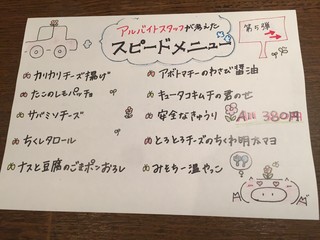 アルバイトスタッフが考えた
スピードメニュー
第5弾
カリカリチーズ揚げ
たこのしそパッチョ
サバミソチーズ
ちくレタロール
ナスと豆腐のごまポンおろし
アボトマチーのわさび醤油
キュータコキムチの君のせ
安全なきゅうり
とろとろチーズのちくわ明太マヨ
みもろー温やっこ
All 380円